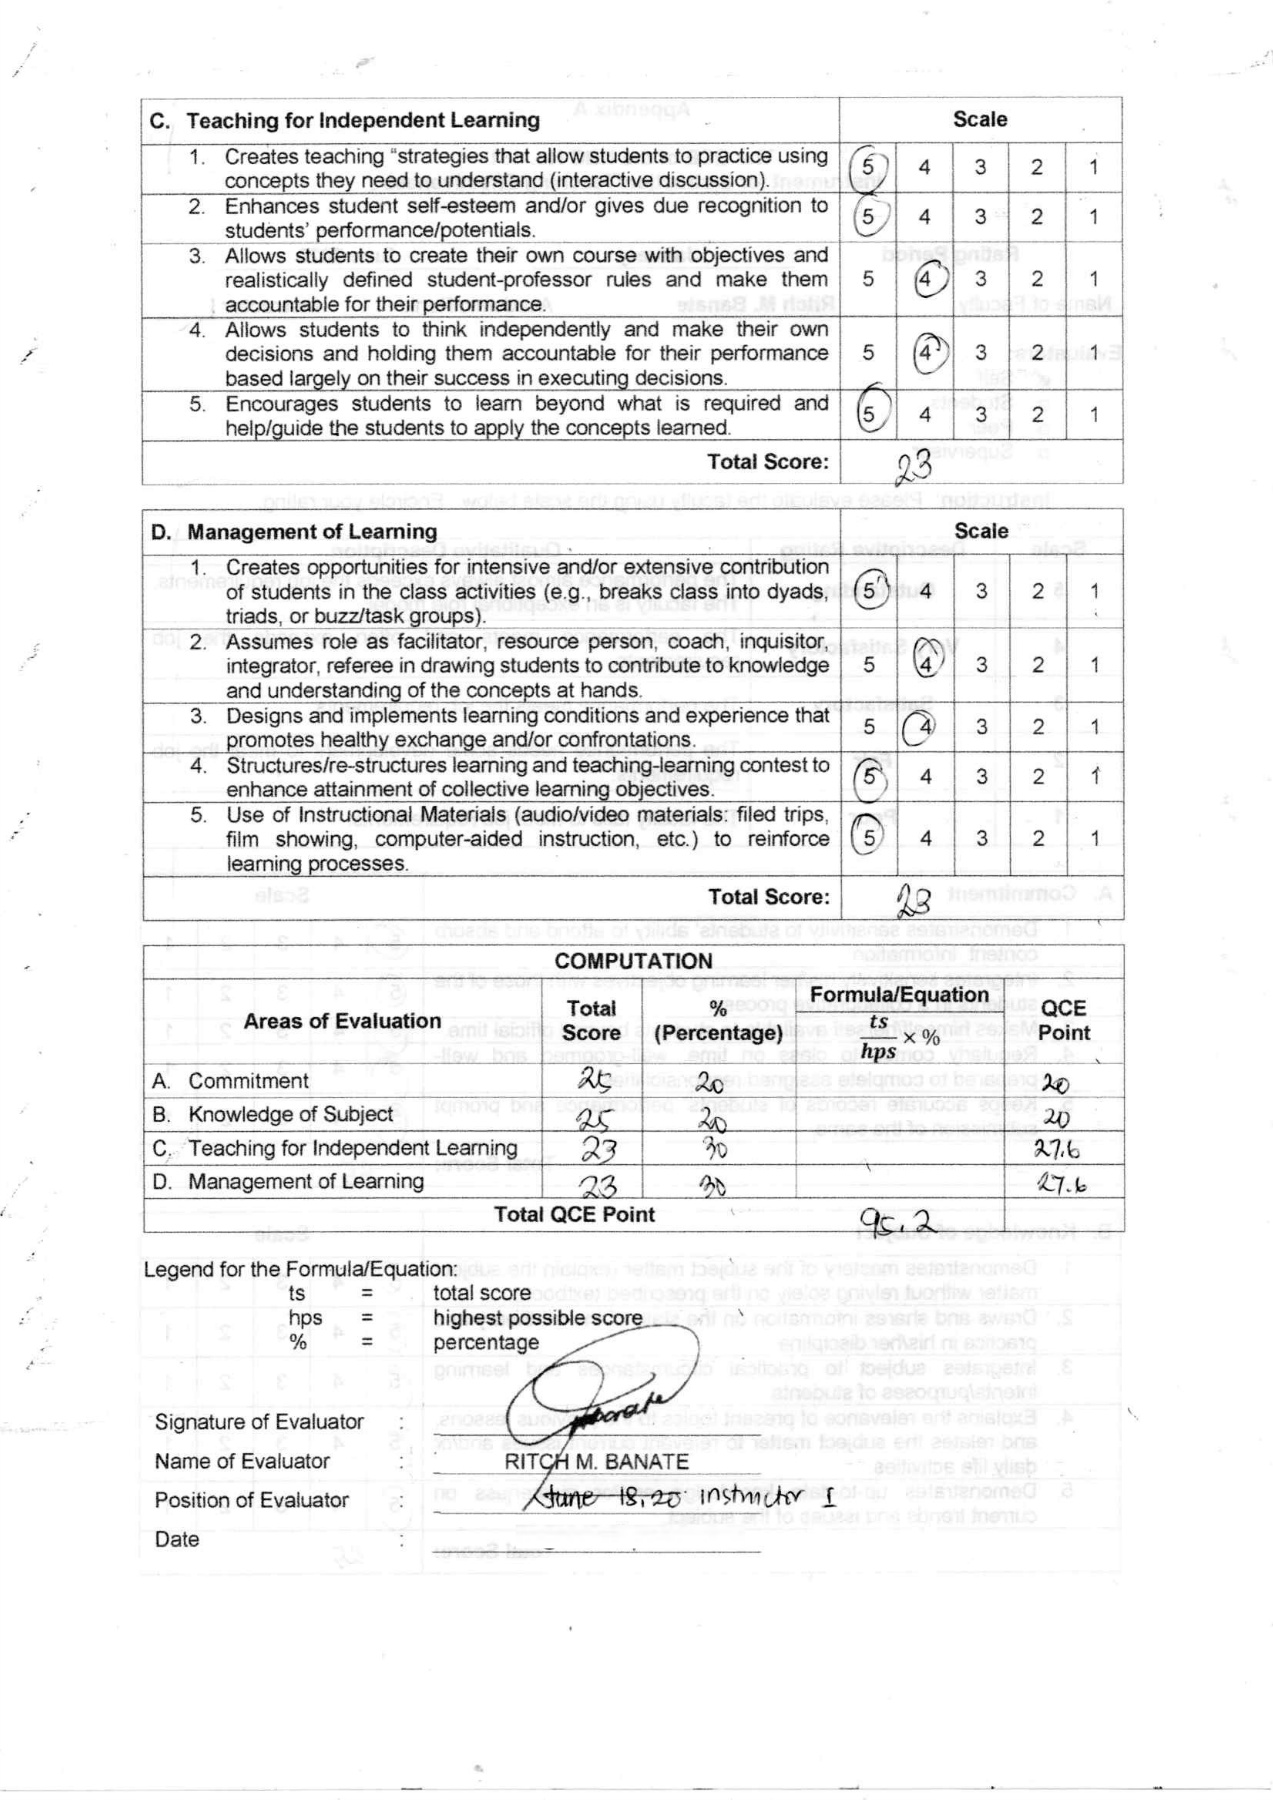 C. Teaching for Independent Learning Scale
1. Creates teaching "strategies that allow students to practice using
concepts they need to understand (interactive discussion). 5 4 3 2 1
2. Enhances student self-esteem and/or gives due recognition to
students' performance/potentials. 5 4 3 2 1
3. Allows students to create their own course with objectives and
realistically defined student-professor rules and make them 5 4 3 2 1
accountable for their performance.
4. Allows students to think independently and make their own
decisions and holding them accountable for their performance 5 4 3 2 1
based largely on their success in executing decisions.
5. Encourages students to learn beyond what is required and
help/guide the students to apply the concepts learned. 5 4 3 2 1
Total Score: 23
D. Management of Learning Scale
1. Creates opportunities for intensive and/or extensive contribution
of students in the class activities (e.g., breaks class into dyads, 5 4 3 2 1
triads, or buzz/task groups).
2. Assumes role as facilitator, resource person, coach, inquisitor,
integrator, referee in drawing students to contribute to knowledge 5 4 3 2 1
and understanding of the concepts at hands.
3. Designs and implements learning conditions and experience that
promotes healthy exchange and/or confrontations. 5 4 3 2 1
4. Structures/re-structures learning and teaching-learning contest to
enhance attainment of collective learning objectives. 5 4 3 2 1
5. Use of Instructional Materials (audio/video materials: filed trips,
film showing, computer-aided instruction, etc.) to reinforce 5 4 3 2 1
learning processes.
Total Score: 23
COMPUTATION
Areas of Evaluation Total Score % (Percentage) Formula/Equation ts/hps x % QCE Point
A. Commitment 25 20 20
B. Knowledge of Subject 25 20 20
C. Teaching for Independent Learning 23 30 27.6
D. Management of Learning 23 30 27.6
Total QCE Point 95.2
Legend for the Formula/Equation:
ts = total score
hps = highest possible score
% = percentage
Signature of Evaluator :
Name of Evaluator : RITCH M. BANATE
Position of Evaluator : June 18, 20 instructor I
Date :